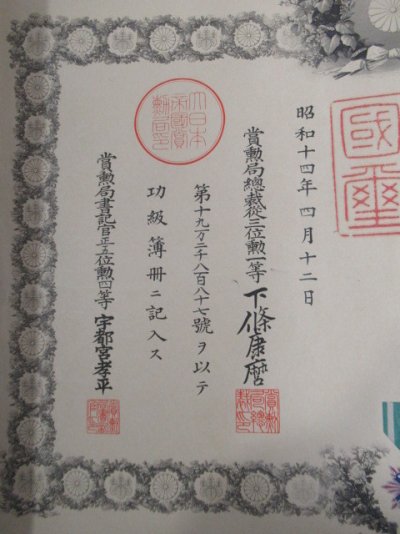 國璽
昭和十四年四月十二日
賞勲局總裁從三位勲一等下條康麿
賞勲
局總
裁印
第十九万二千八百八十七號ヲ以テ
功級簿冊ニ記入ス
大日本
帝國賞
勲局印
賞勲局書記官正五位勲四等宇都宮孝平